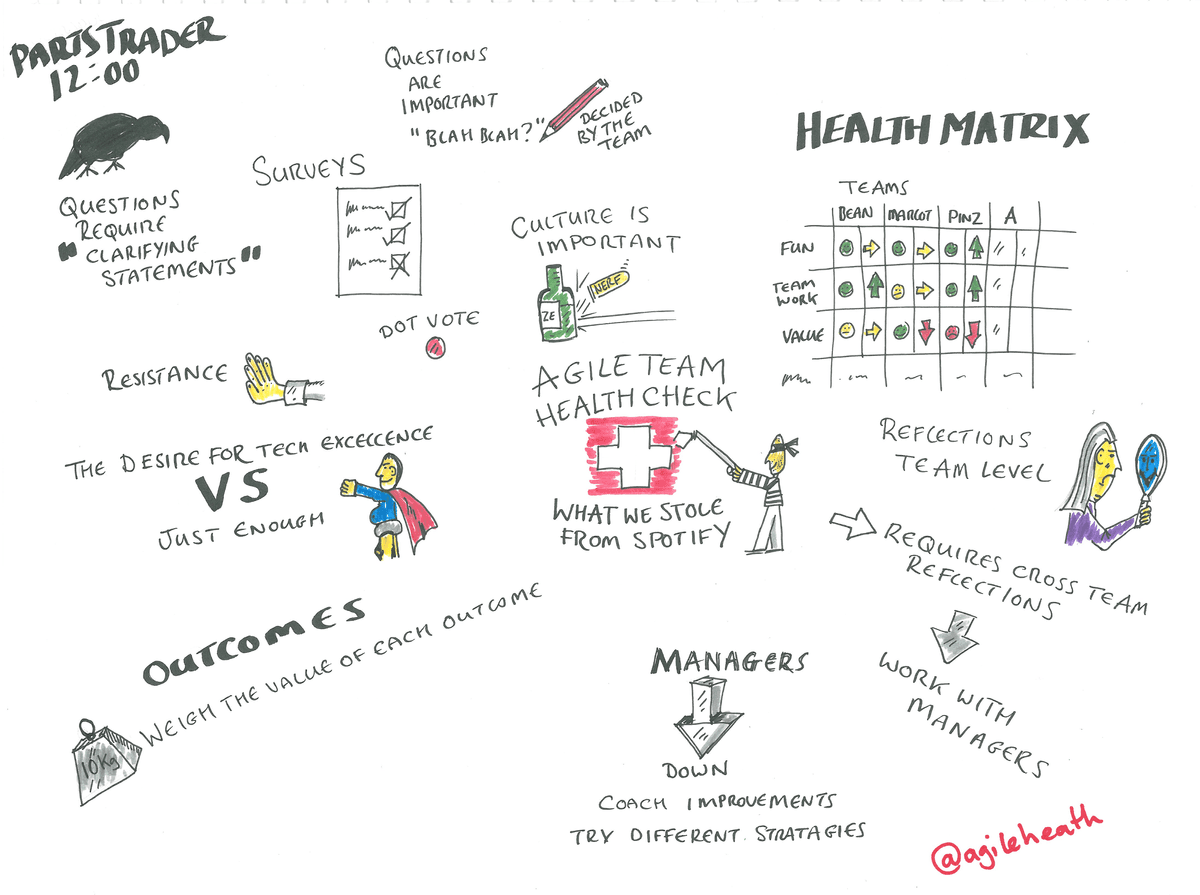 PARTSTRADER
12:00
QUESTIONS
ARE
IMPORTANT
"BLAH BLAH?"
DECIDED
BY THE
TEAM
QUESTIONS
REQUIRE
"CLARIFYING
STATEMENTS"
SURVEYS
DOT VOTE
CULTURE IS
IMPORTANT
NERF
ZE
HEALTH MATRIX
TEAMS
BEAN MARGOT PINZ A
FUN
TEAM
WORK
VALUE
RESISTANCE
AGILE TEAM
HEALTH CHECK
WHAT WE STOLE
FROM SPOTIFY
THE DESIRE FOR TECH EXCELLENCE
VS
JUST ENOUGH
REFLECTIONS
TEAM LEVEL
REQUIRES CROSS TEAM
REFLECTIONS
WORK WITH
MANAGERS
OUTCOMES
WEIGH THE VALUE OF EACH OUTCOME
10Kg
MANAGERS
DOWN
COACH IMPROVEMENTS
TRY DIFFERENT STRATAGIES
@agileheath